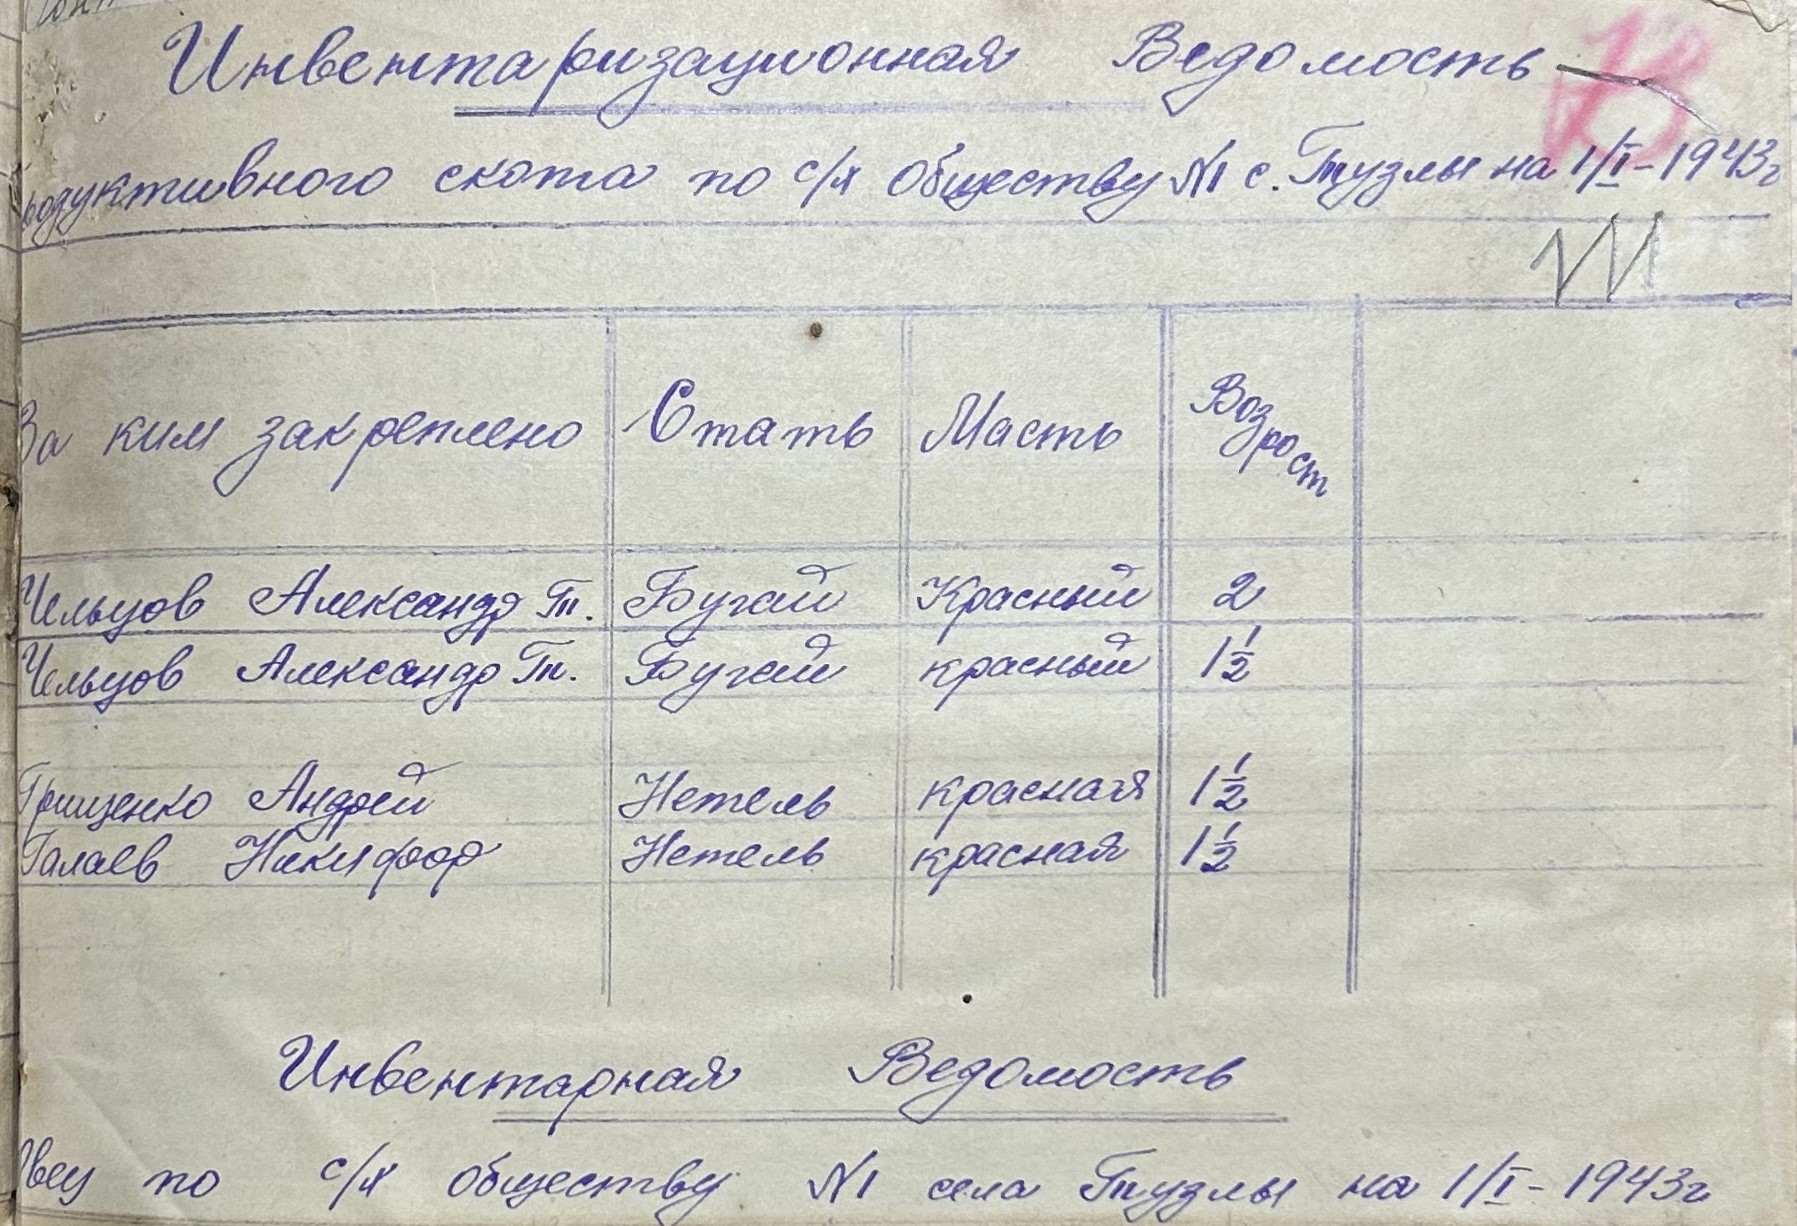 Инвентаризационная Ведомость
продуктивного скота по с/х обществу №1 с. Тузлы на 1/I-1943г
За ким закреплено Стать Масть Возрост
Чельцов Александр Т. Бугай Красный 2
Чельцов Александр Т. Бугай красный 1½
Грищенко Андрей Нетель красная 1½
Галаев Никифор Нетель красная 1½
Инвентарная Ведомость
Овец по с/х обществу №1 села Тузлы на 1/I-1943г